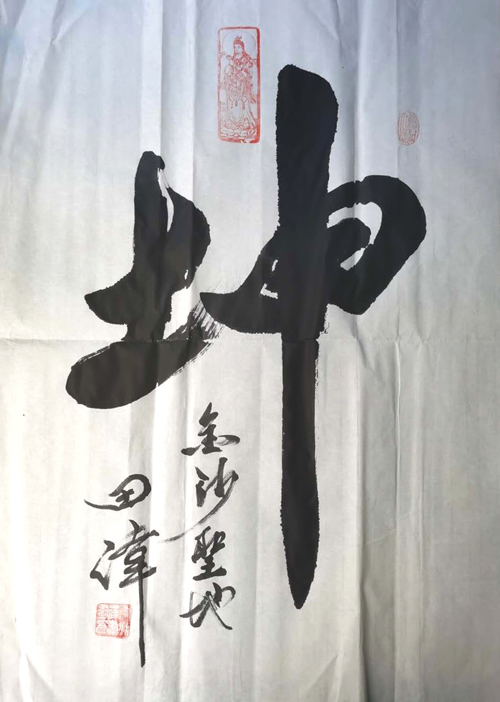 坤
金沙聖地
田